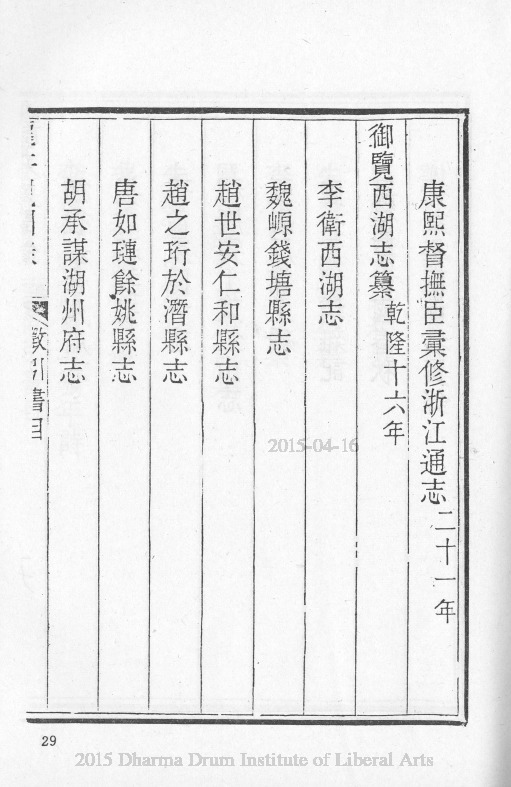 康熙督撫臣彙修浙江通志二十一年
御覽西湖志纂乾隆十六年
李衛西湖志
魏㟲錢塘縣志
趙世安仁和縣志
趙之珩於潛縣志
唐如璉餘姚縣志
胡承謀湖州府志
徵引書目
2015-04-16
29
2015 Dharma Drum Institute of Liberal Arts